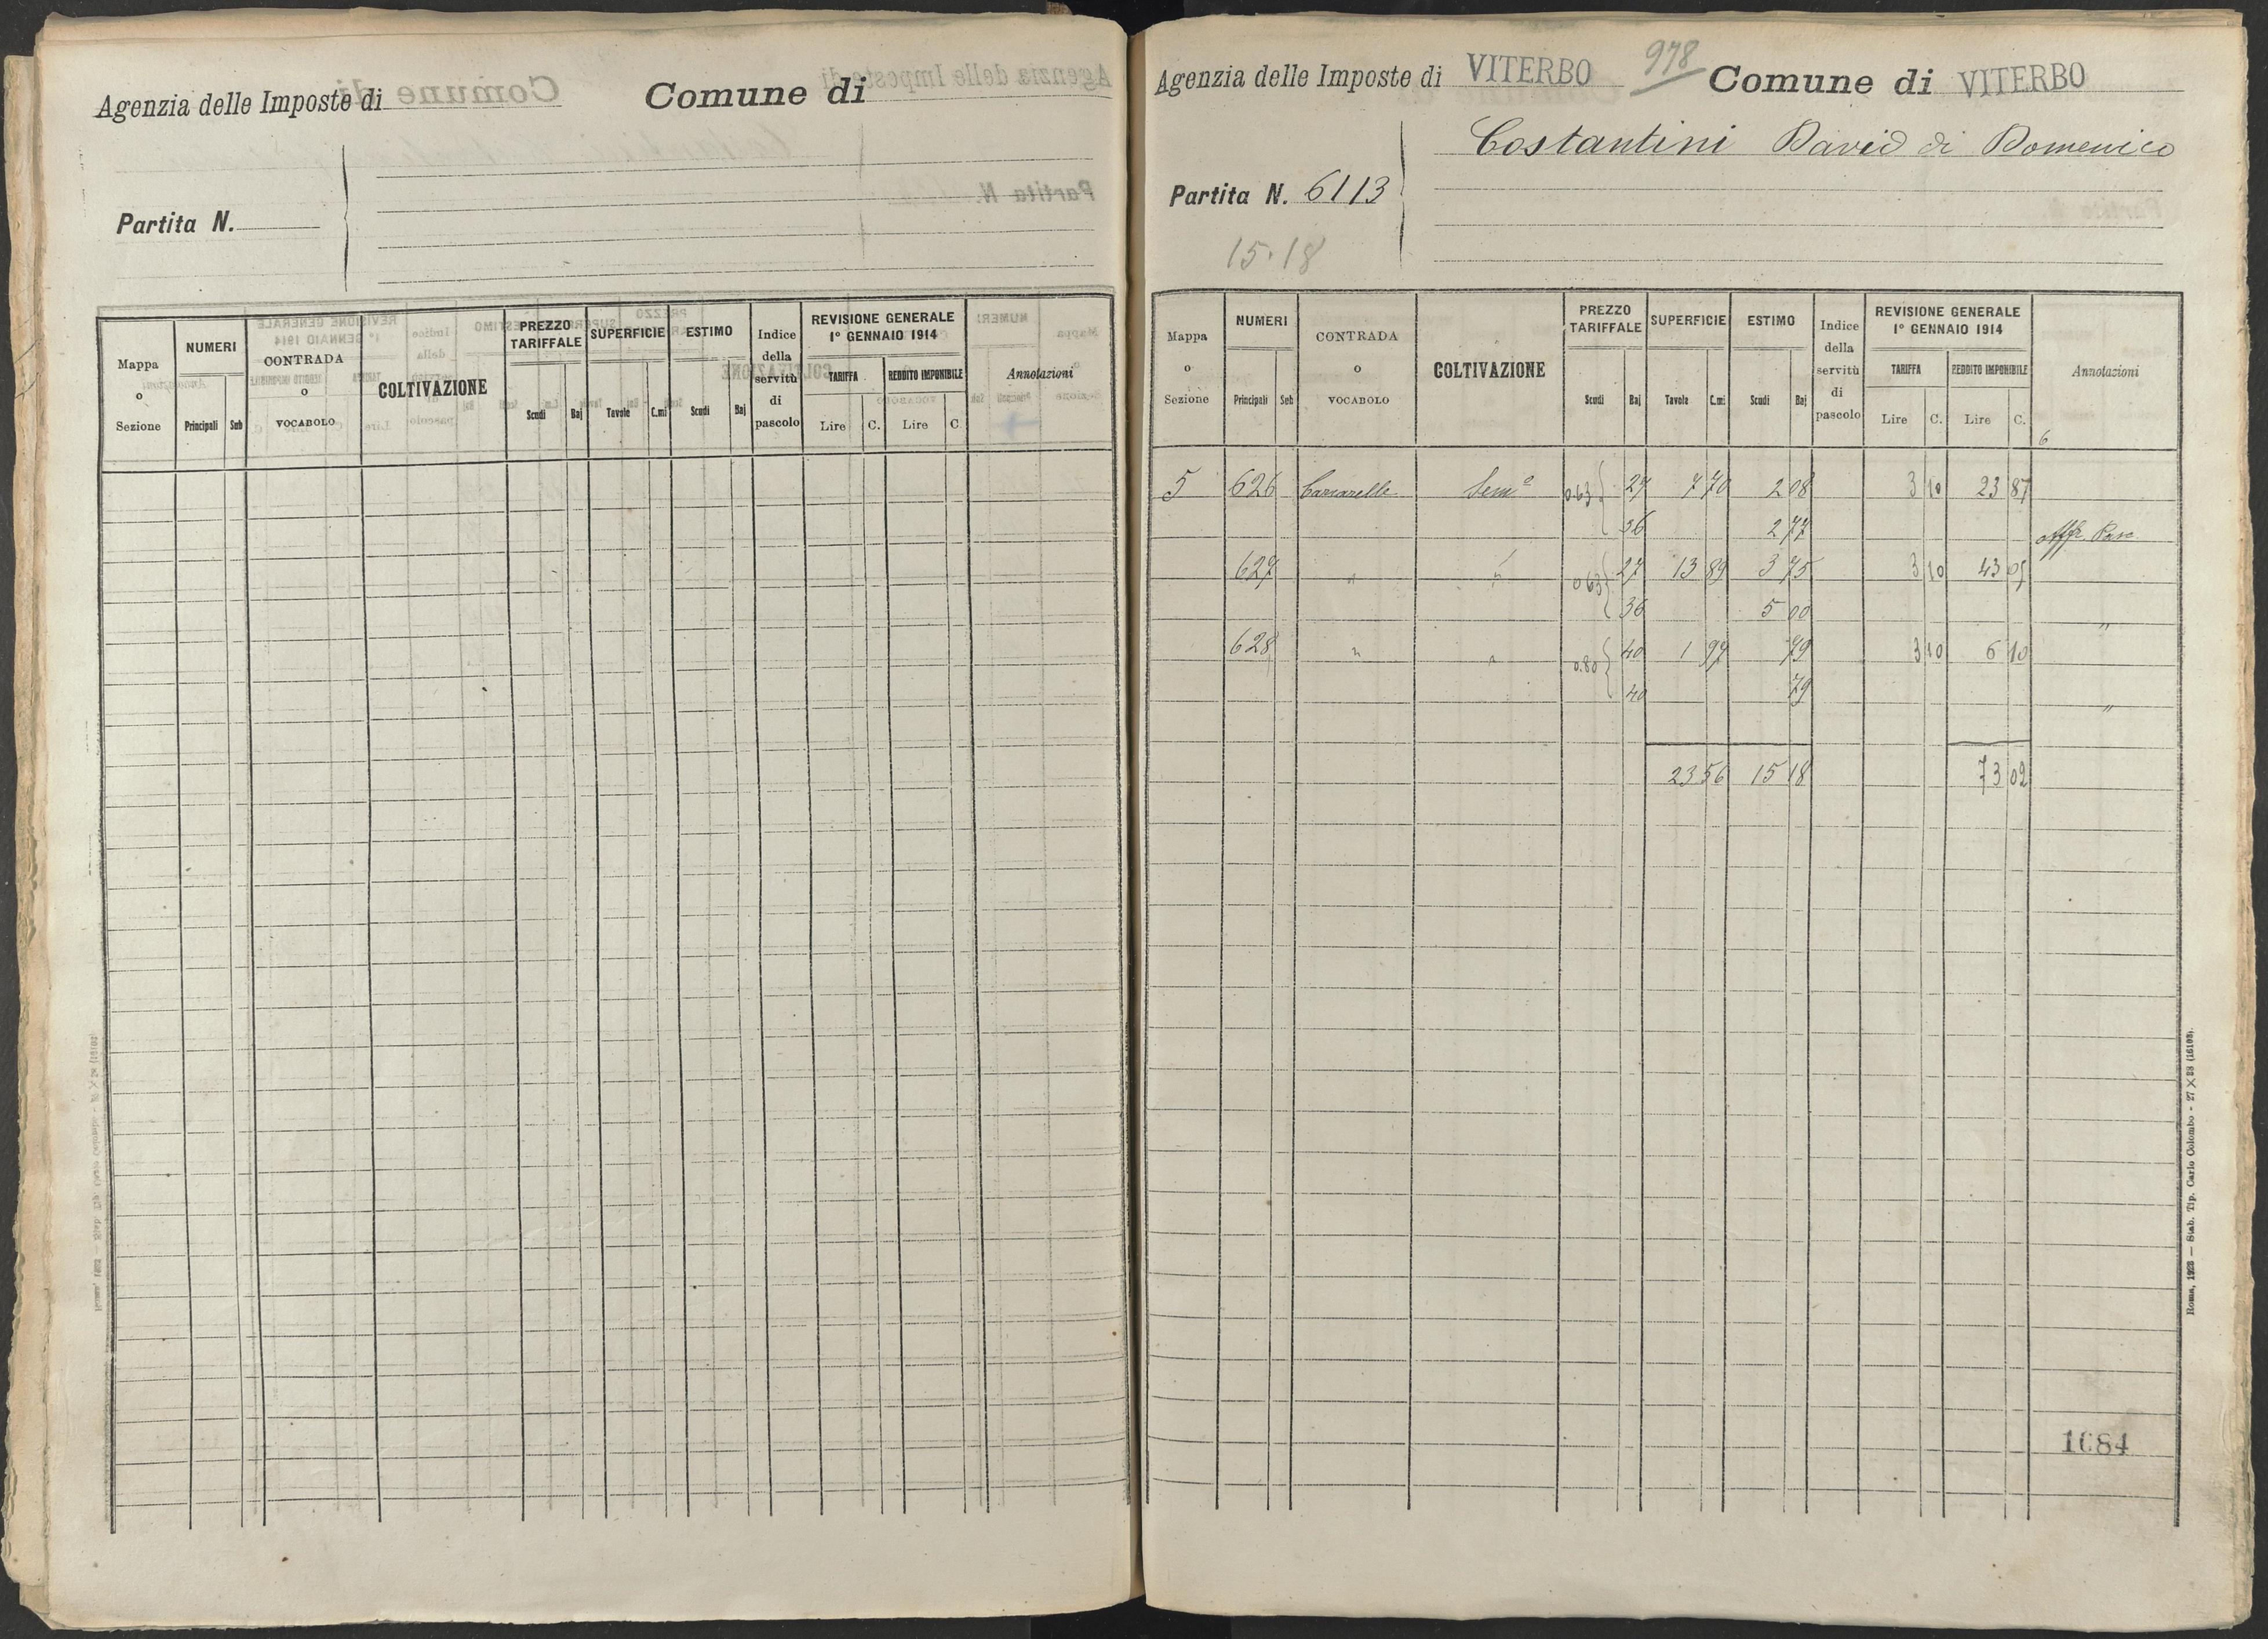 Agenzia delle Imposte di
Comune di
Partita N.
Mappa o Sezione
NUMERI
Principali Sub
CONTRADA o VOCABOLO
COLTIVAZIONE
PREZZO TARIFFALE
Scudi Baj
SUPERFICIE
Tavole C.mi
ESTIMO
Scudi Baj
Indice della servitù di pascolo
REVISIONE GENERALE 1° GENNAIO 1914
TARIFFA REDDITO IMPONIBILE
Lire C. Lire C.
Annotazioni
Agenzia delle Imposte di VITERBO 978 Comune di VITERBO
Costantini David di Domenico
Partita N. 6113
15.18
Mappa o Sezione
NUMERI
Principali Sub
CONTRADA o VOCABOLO
COLTIVAZIONE
PREZZO TARIFFALE
Scudi Baj
SUPERFICIE
Tavole C.mi
ESTIMO
Scudi Baj
Indice della servitù di pascolo
REVISIONE GENERALE 1° GENNAIO 1914
TARIFFA REDDITO IMPONIBILE
Lire C. Lire C.
Annotazioni
6
5 626 Sem.o 0.63 { 27 7 70 2 08 3 10 23 87
36 2 77 Affr. Pasc.
627 " " 0.63 { 27 13 89 3 75 3 10 43 05
36 5 00 "
628 " " 0.80 { 40 1 97 79 3 10 6 10
40 79 "
23 56 15 18 73 02
1084
Roma, 1923 — Stab. Tip. Carlo Colombo - 27 X 38 (16103).